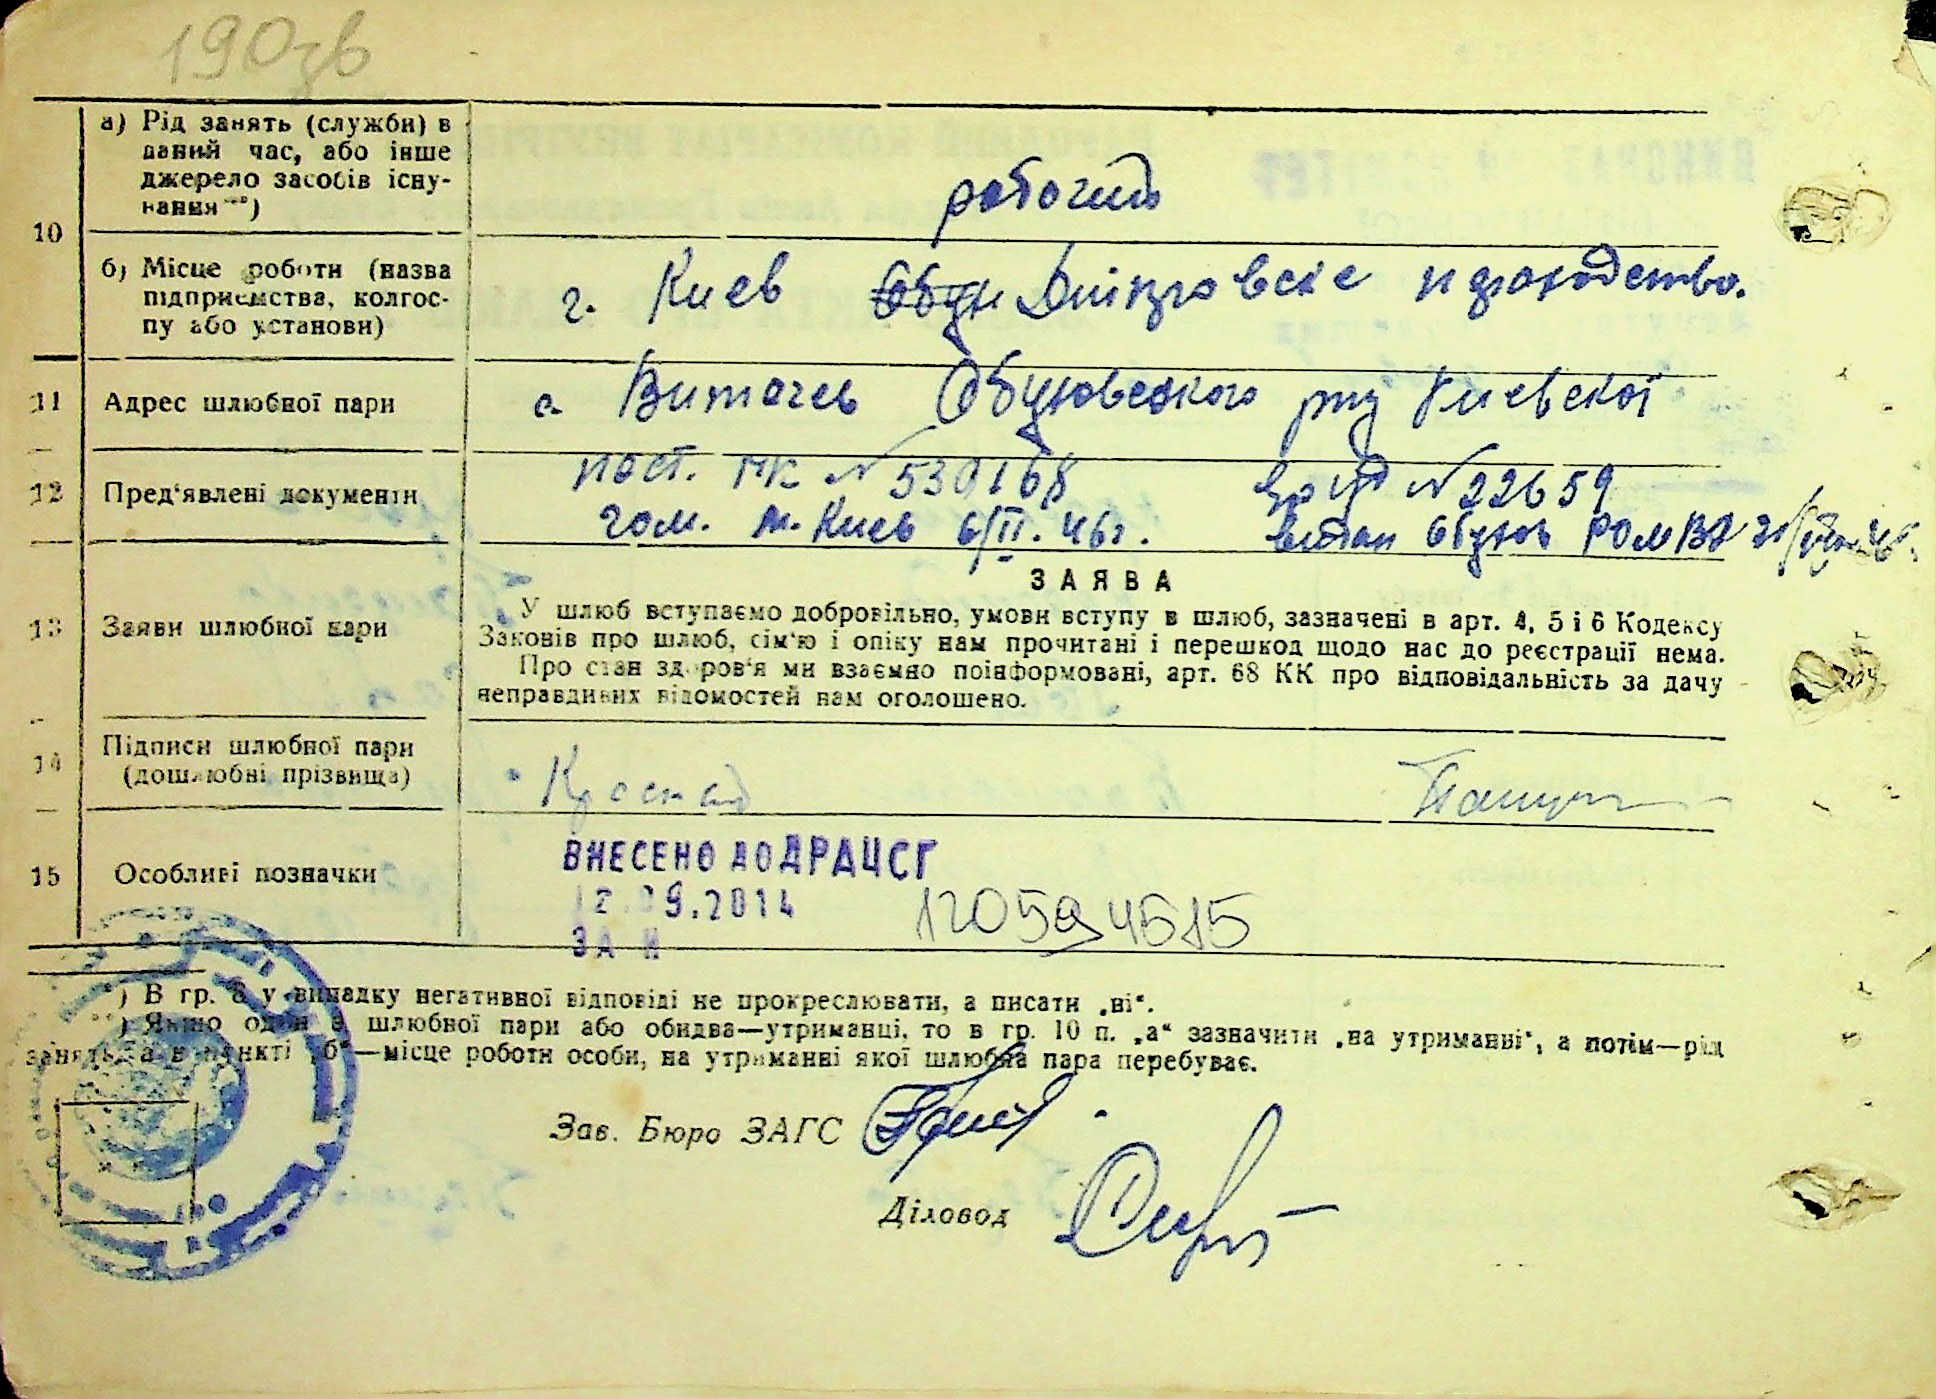 190зв
10
а) Рід занять (служби) в
даний час, або інше
джерело засобів існу-
вання **)
робочий
б) Місце роботи (назва
підприємства, колгос-
пу або установи)
г. Киев Дніпровске пароходство.
11
Адрес шлюбної пари
с. Витачев Обуховского рну Киевскої
12
Пред'явлені документи
пост. № 530168 № 22659
м. Киев 6/II. 46г. Обухов РОМВД
13
Заяви шлюбної пари
ЗАЯВА
У шлюб вступаємо добровільно, умови вступу в шлюб, зазначені в арт. 4, 5 і 6 Кодексу
Законів про шлюб, сім'ю і опіку нам прочитані і перешкод щодо нас до реєстрації нема.
Про стан здоров'я ми взаємно поінформовані, арт. 68 КК про відповідальність за дачу
неправдивих відомостей нам оголошено.
14
Підписи шлюбної пари
(дошлюбні прізвища)
15
Особливі позначки
ВНЕСЕНО ДО ДРАЦСГ
12.09.2014
ЗА N
*) В гр. 8 у випадку негативної відповіді не прокреслювати, а писати „ні“.
**) Якщо один з шлюбної пари або обидва—утриманці, то в гр. 10 п. „а“ зазначити „на утриманні“, а потім—рід
занять, а в пункті „б“—місце роботи особи, на утриманні якої шлюбна пара перебуває.
Зав. Бюро ЗАГС
Діловод